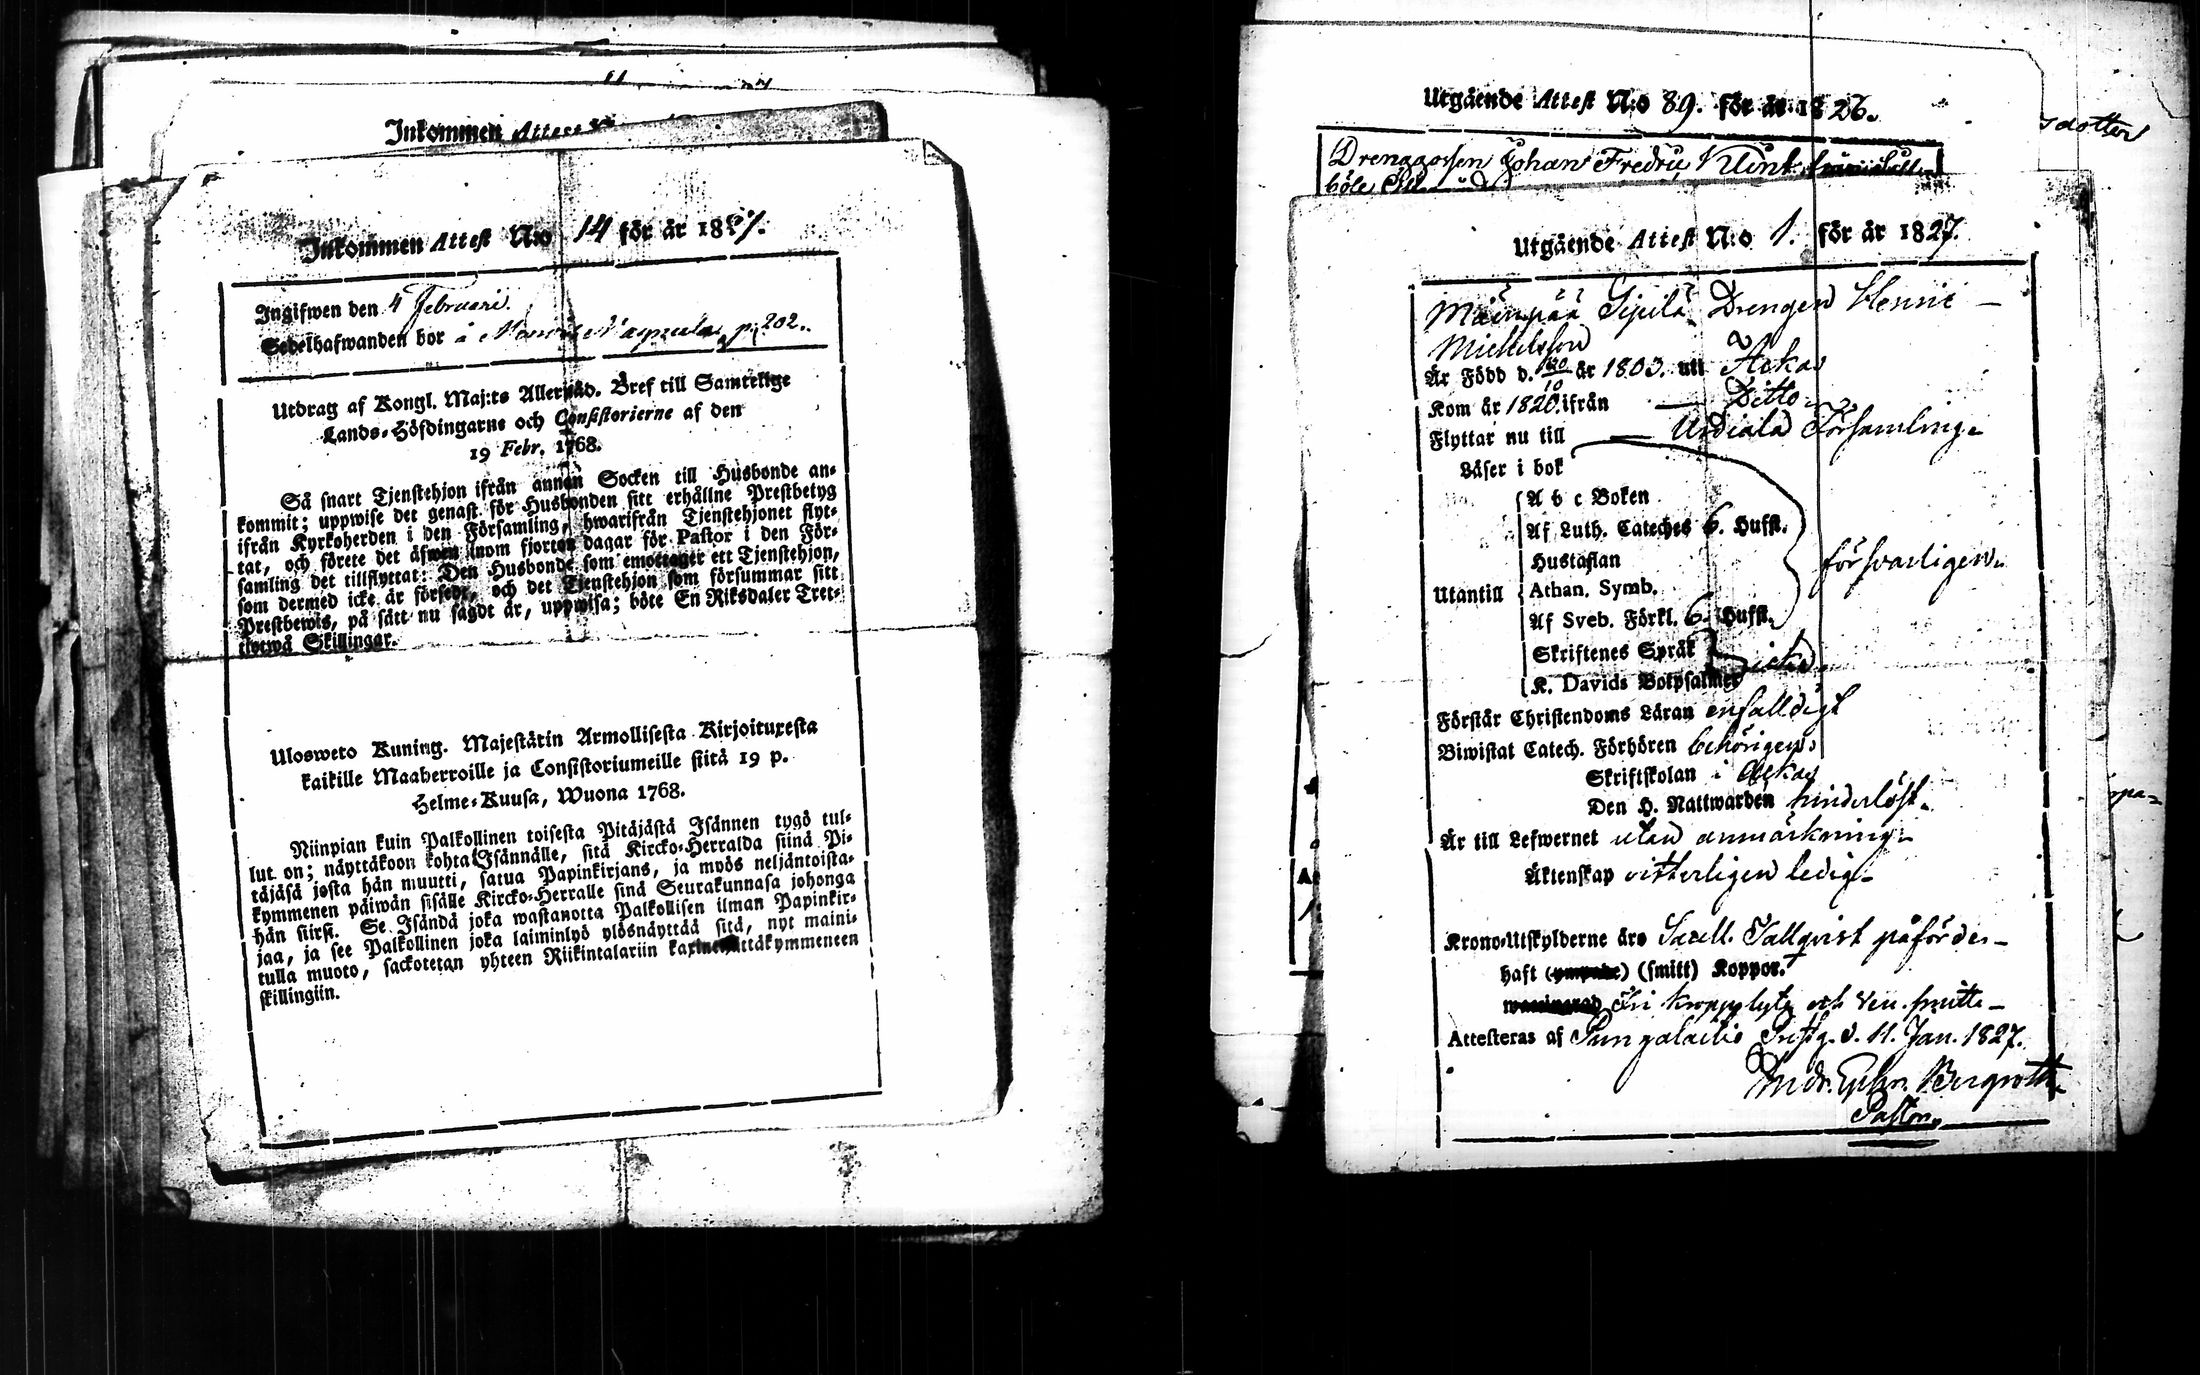 Inkommen Attest
Inkommen Attest N:o 14 för år 1827.
Ingifwen den 4 Februari.
Sedelhafwanden bor å p. 202.
Utdrag af Kongl. Maj:ts Allernåd. Bref till Samtelige
Lands-Höfdingarne och Consistorierne af den
19 Febr. 1768.
Så snart Tjenstehjon ifrån annan Socken till Husbonde an-
kommit; uppwise det genast för Husbonden sitt erhållne Prestbetyg
ifrån Kyrkoherden i den Församling, hwarifrån Tjenstehjonet flyt-
tat, och förete det äfwen inom fjorton dagar för Pastor i den För-
samling det tillflyttat: Den Husbonde som emottager ett Tjenstehjon,
som dermed icke är försedt, och det Tjenstehjon som försummar sitt
Prestbewis, på sätt nu sagdt är, uppwisa; böte En Riksdaler Tret-
tiotwå Skillingar.
Ulosweto Kuning. Majestätin Armollisesta Kirjoituxesta
kaikille Maaherroille ja Consistoriumeille siitä 19 p.
Helme-Kuusa, Wuona 1768.
Niinpian kuin Palkollinen toisesta Pitäjästä Isännen tygö tul-
lut on; näyttäköön kohta Isännälle, sitä Kircko-Herralda siinä Pi-
täjäsä josta hän muutti, satua Papinkirjans, ja myös neljäntoista-
kymmenen päiwän sisälle Kircko-Herralle sinä Seurakunnasa johonga
hän siirsi. Se Isändä joka wastanotta Palkollisen ilman Papinkir-
jaa, ja see Palkollinen joka laiminlyö ylösnäyttää sitä, nyt maini-
tulla muoto, sackotetan yhteen Riikintalariin
skillingiin.
Utgående Attest N:o 89. för år 1826.
Drenggossen Johan Fredric Klint
böle
sdotter
Utgående Attest N:o 1. för år 1827.
Mäenpää Sipilä Drengen Henric
Michelsson
Är Född d. år 1803. uti Ackas
Kom år 1820. ifrån Ditto
Flyttar nu till Urdiala Församling.
Läser i bok
A b c Boken
Af Luth. Cateches 6. Hufst.
Hustaflan
försvarligen.
Utantill Athan. Symb.
Af Sveb. Förkl. 6. Hufst.
Skriftenes Språk
icke
K. Davids Botpsalmer
Förstår Christendoms Läran enfalldigt
Biwistat Catech. Förhören behörigen
Skriftskolan i Ackas
Den H. Nattwarden hinderlöst.
Är till Lefwernet utan anmärkning.
Äktenskap vitterligen ledig.
Krono-Utskylderne äro Sacell. Tallqvist påförde.
Haft (smitt) Koppor.
Fri
Attesteras af d. 11. Jan. 1827.
Bergroth
Pastor.